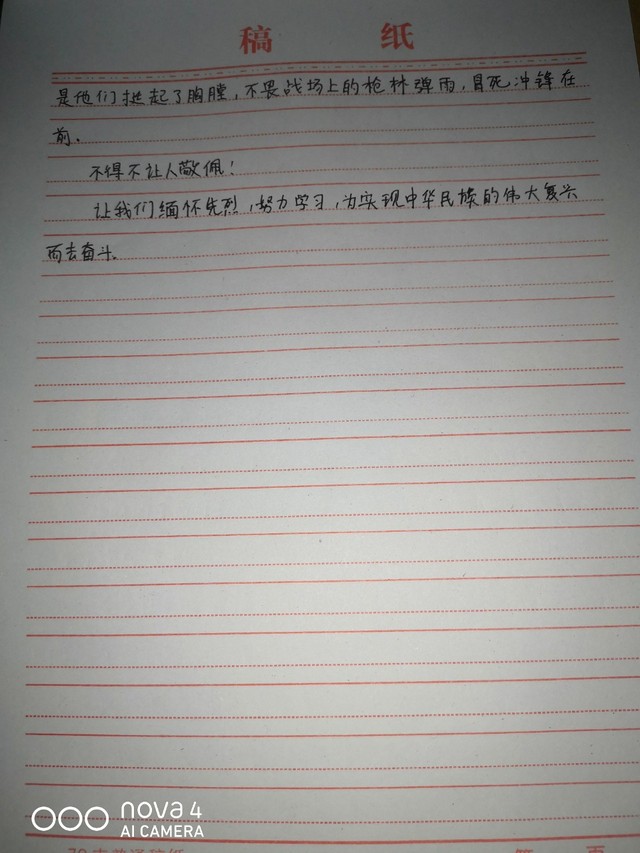 稿 纸
是他们挺起了胸膛，不畏战场上的枪林弹雨，冒死冲锋在
前.
不得不让人敬佩！
让我们缅怀先烈，努力学习，为实现中华民族的伟大复兴
而去奋斗.
nova 4
AI CAMERA